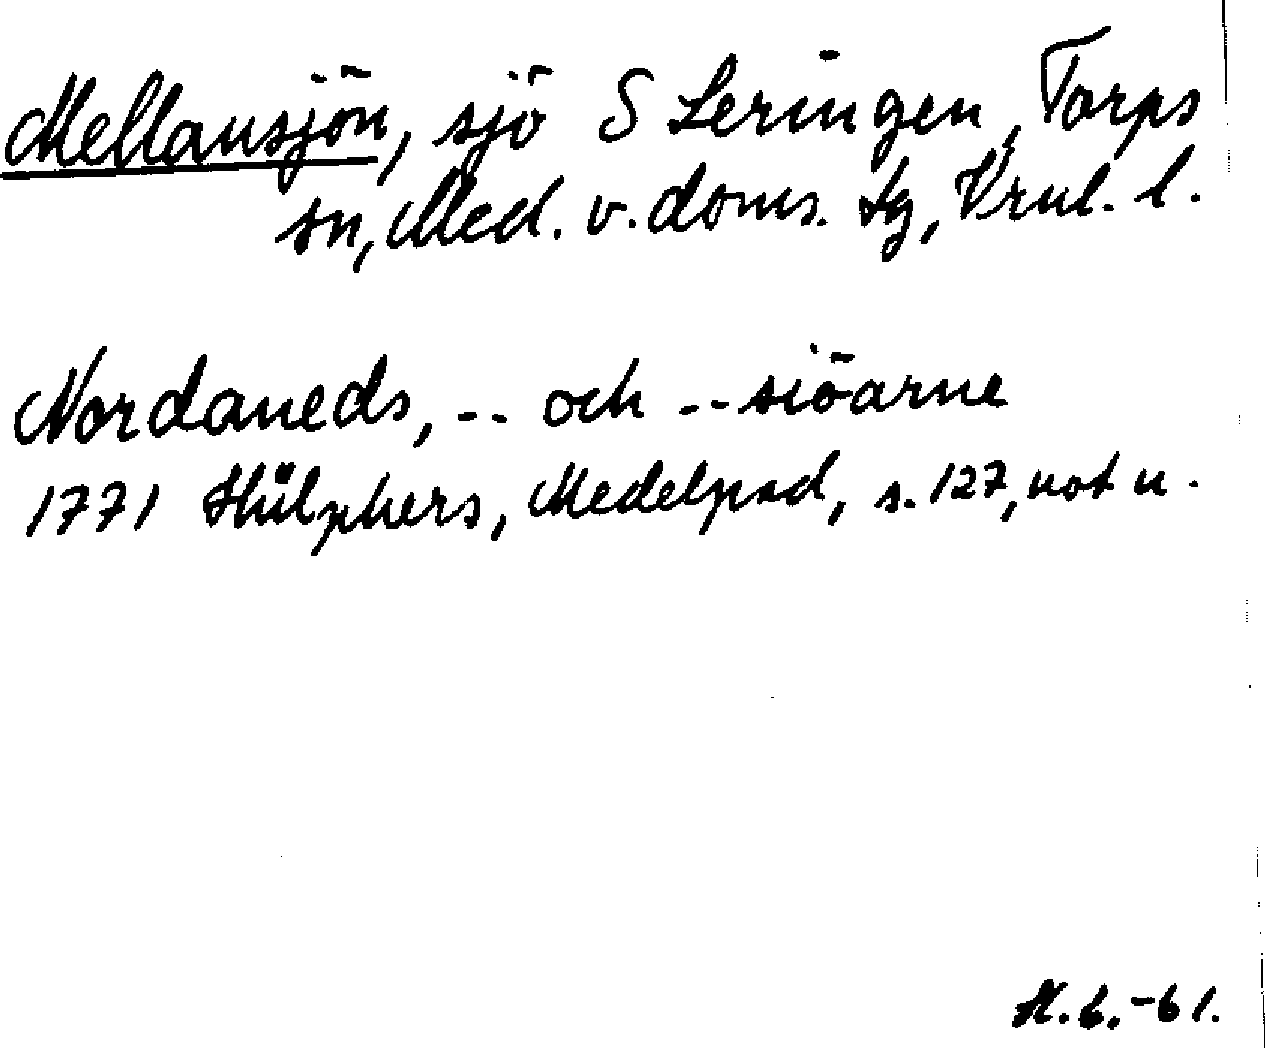 Mellansjön, sjö S Leringen, Torps
sn, Med. v. doms. tg, Vrnl. l.
Nordaneds, -- och -- siöarne
1771 Hülphers, Medelpad, s. 127, not u.
H.b.-61.